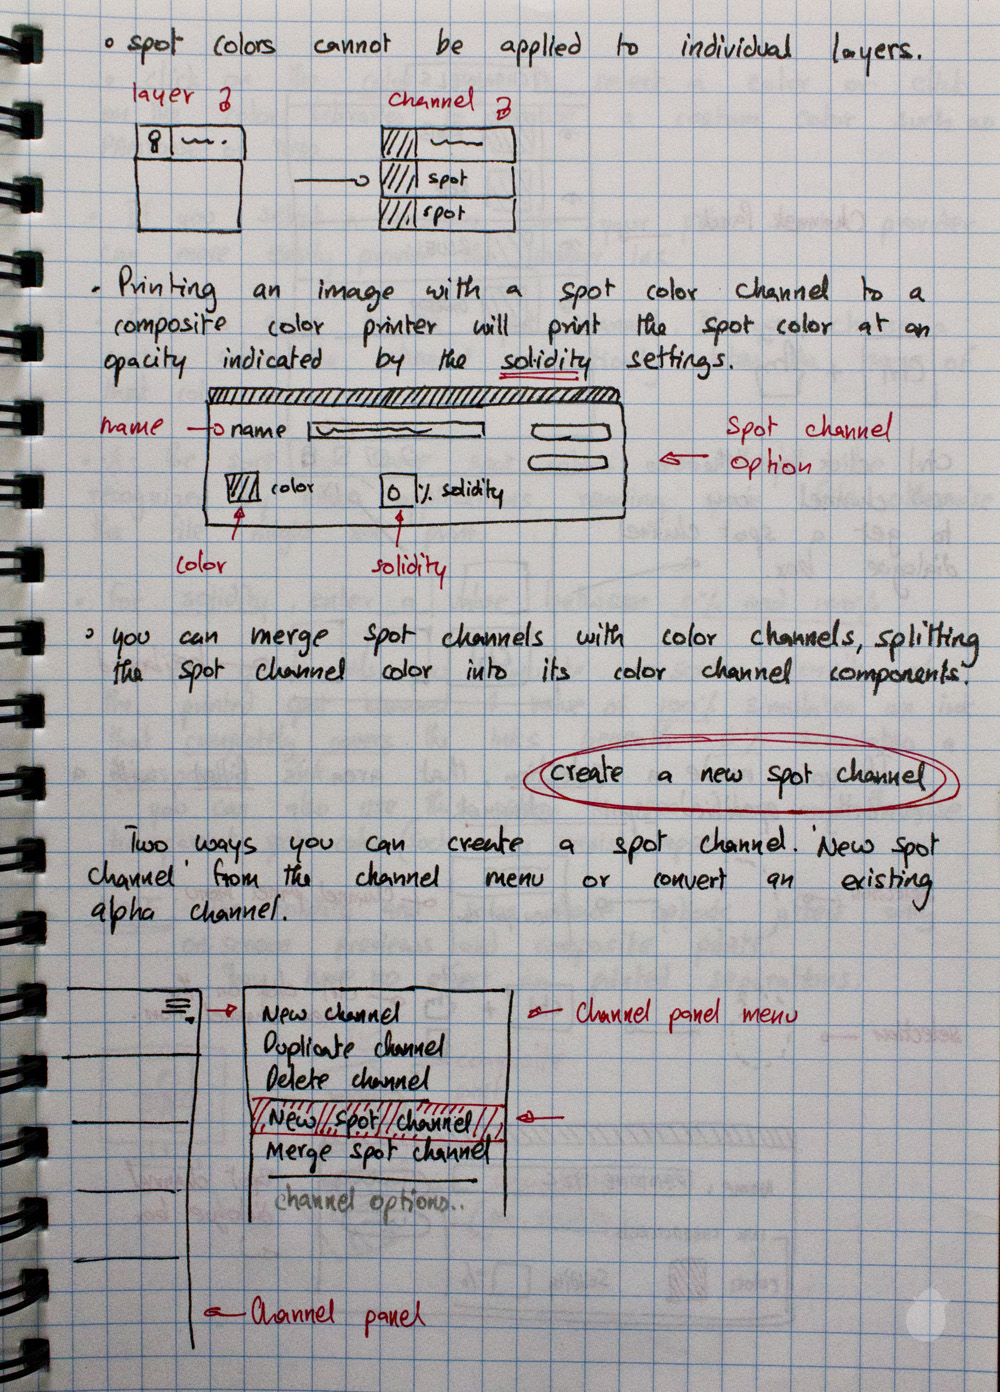 • spot colors cannot be applied to individual layers.
layer
channel
spot
spot
• Printing an image with a spot color channel to a
composite color printer will print the spot color at an
opacity indicated by the solidity settings.
name
name
Spot channel
option
color
0 % solidity
color
solidity
• you can merge spot channels with color channels, splitting
the spot channel color into its color channel components.
create a new spot channel
Two ways you can create a spot channel. 'New spot
channel' from the channel menu or convert an existing
alpha channel.
New channel
Channel panel menu
Duplicate channel
Delete channel
New spot channel
Merge spot channel
channel options..
Channel panel